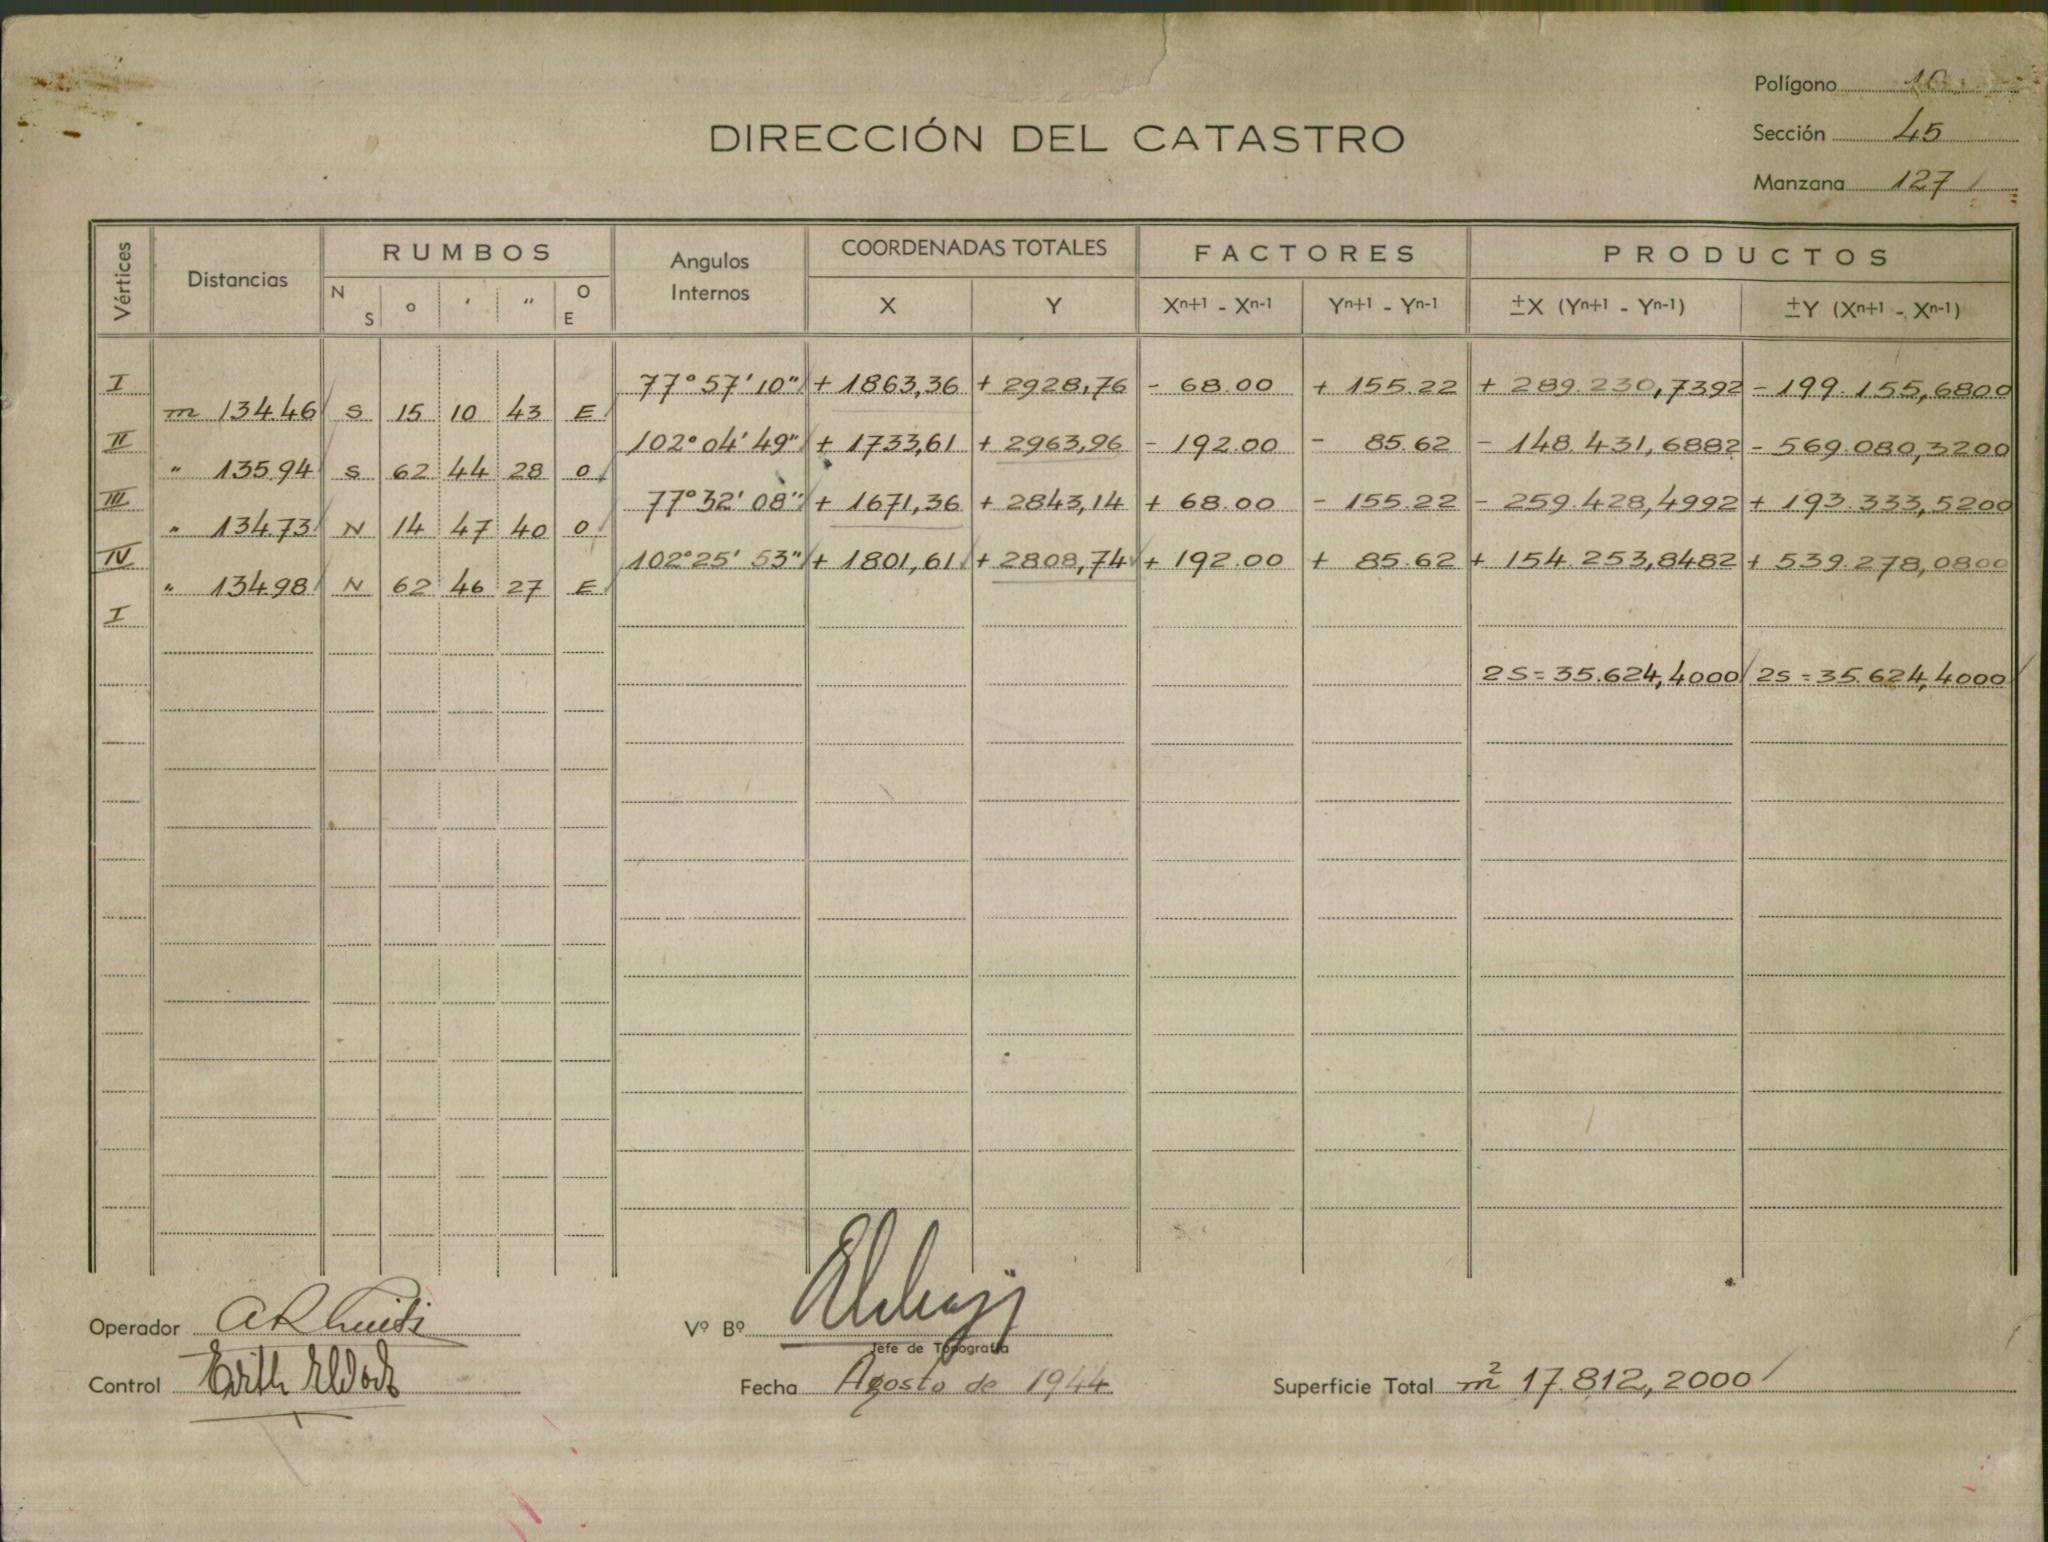 Polígono 10
DIRECCIÓN DEL CATASTRO
Sección 45
Manzana 127
Vértices Distancias RUMBOS Angulos Internos COORDENADAS TOTALES FACTORES PRODUCTOS
N S ° ′ ″ O E X Y Xn+1 - Xn-1 Yn+1 - Yn-1 ±X (Yn+1 - Yn-1) ±Y (Xn+1 - Xn-1)
I 77° 57' 10" + 1863,36 + 2928,76 - 68.00 + 155.22 + 289.230,7392 - 199.155,6800
m 134.46 S 15 10 43 E
II 102° 04' 49" + 1733,61 + 2963,96 - 192.00 - 85.62 - 148.431,6882 - 569.080,3200
" 135.94 S 62 44 28 O
III 77° 32' 08" + 1671,36 + 2843,14 + 68.00 - 155.22 - 259.428,4992 + 193.333,5200
" 134.73 N 14 47 40 O
IV 102° 25' 53" + 1801,61 + 2808,74 + 192.00 + 85.62 + 154.253,8482 + 539.278,0800
" 134.98 N 62 46 27 E
I
2S = 35.624,4000 2S = 35.624,4000
Operador
Vº Bº
Jefe de Topografía
Control
Fecha Agosto de 1944
Superficie Total m² 17.812,2000